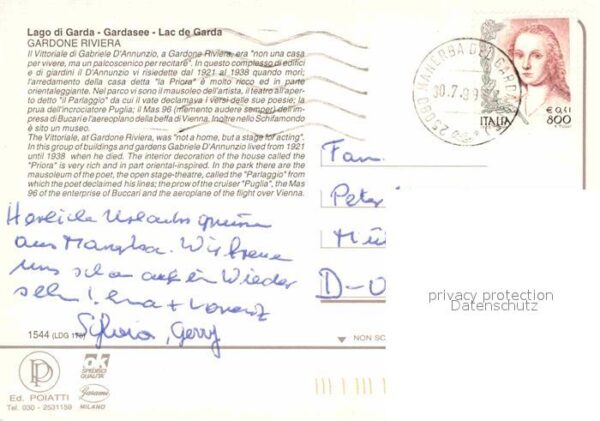 Lago di Garda - Gardasee - Lac de Garda
GARDONE RIVIERA
Il Vittoriale di Gabriele D'Annunzio, a Gardone Riviera, era "non una casa
per vivere, ma un palcoscenico per recitare". In questo complesso di edifici
e di giardini il D'Annunzio vi risiedette dal 1921 al 1938 quando morì;
l'arredamento della casa detta "la Priora" è molto ricco ed in parte
orientaleggiante. Nel parco vi sono il mausoleo dell'artista, il teatro all'aper-
to detto "il Parlaggio" da cui il vate declamava i versi delle sue poesie; la
prua dell'incrociatore Puglia; il Mas 96 (memento audere semper) dell'im-
presa di Buccari e l'aeroplano della beffa di Vienna. Inoltre nello Schifamondo
è sito un museo.
The Vittoriale, at Gardone Riviera, was "not a home, but a stage for acting".
In this group of buildings and gardens Gabriele D'Annunzio lived from 1921
until 1938 when he died. The interior decoration of the house called the
"Priora" is very rich and in part oriental-inspired. In the park there are the
mausoleum of the poet, the open stage-theatre, called the "Parlaggio" from
which the poet declaimed his lines; the prow of the cruiser "Puglia", the Mas
96 of the enterprise of Buccari and the aeroplane of the flight over Vienna.
Herzliche Urlaubsgrüsse
aus Wir freuen
uns schon auf ein Wieder
sehn! Lena + Lorenz
Silvia, Gerry
1544 (LDG 176)
PP
Ed. POIATTI
Tel. 030 - 2531159
OK
SPEDISCI
QUALITA'
Garami
MILANO
25080 MANERBA DEL GARDA
30.7.99
€ 0,41
ITALIA 800
Fam.
Peter
Mü
D-0
privacy protection
Datenschutz
NON SC